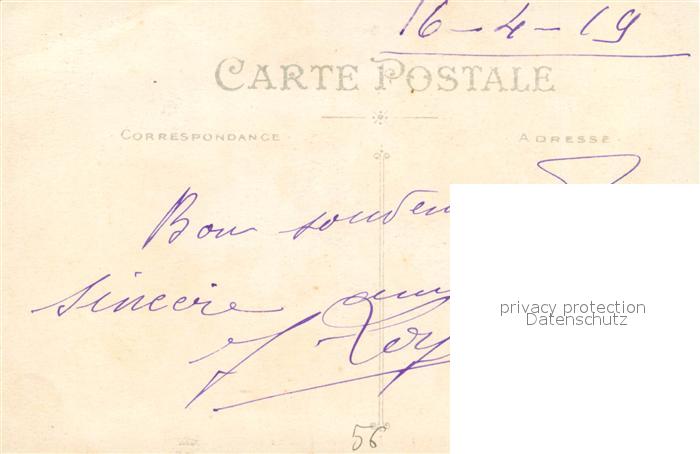 16-4-19
CARTE POSTALE
CORRESPONDANCE
ADRESSE
Bon
sincère
privacy protection
Datenschutz
56